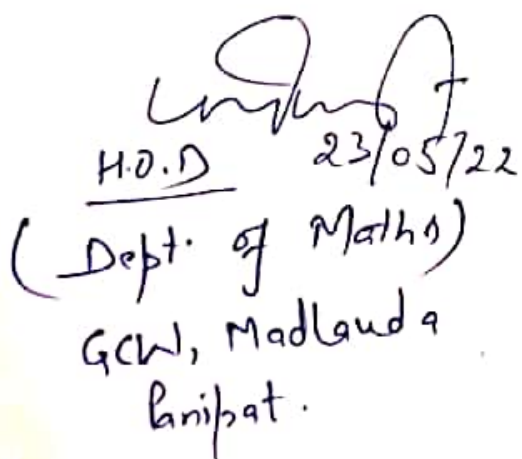 23/05/22
H.O.D
(Dept. of Maths)
GCW, Madlauda
Panipat.